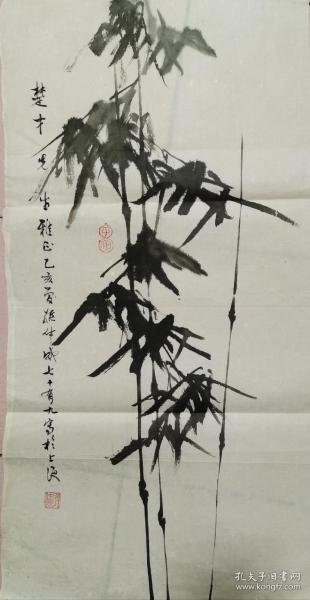 楚才先生雅正乙亥夏孫仲威七十有九寫於上海
孔夫子旧书网
www.kongfz.com